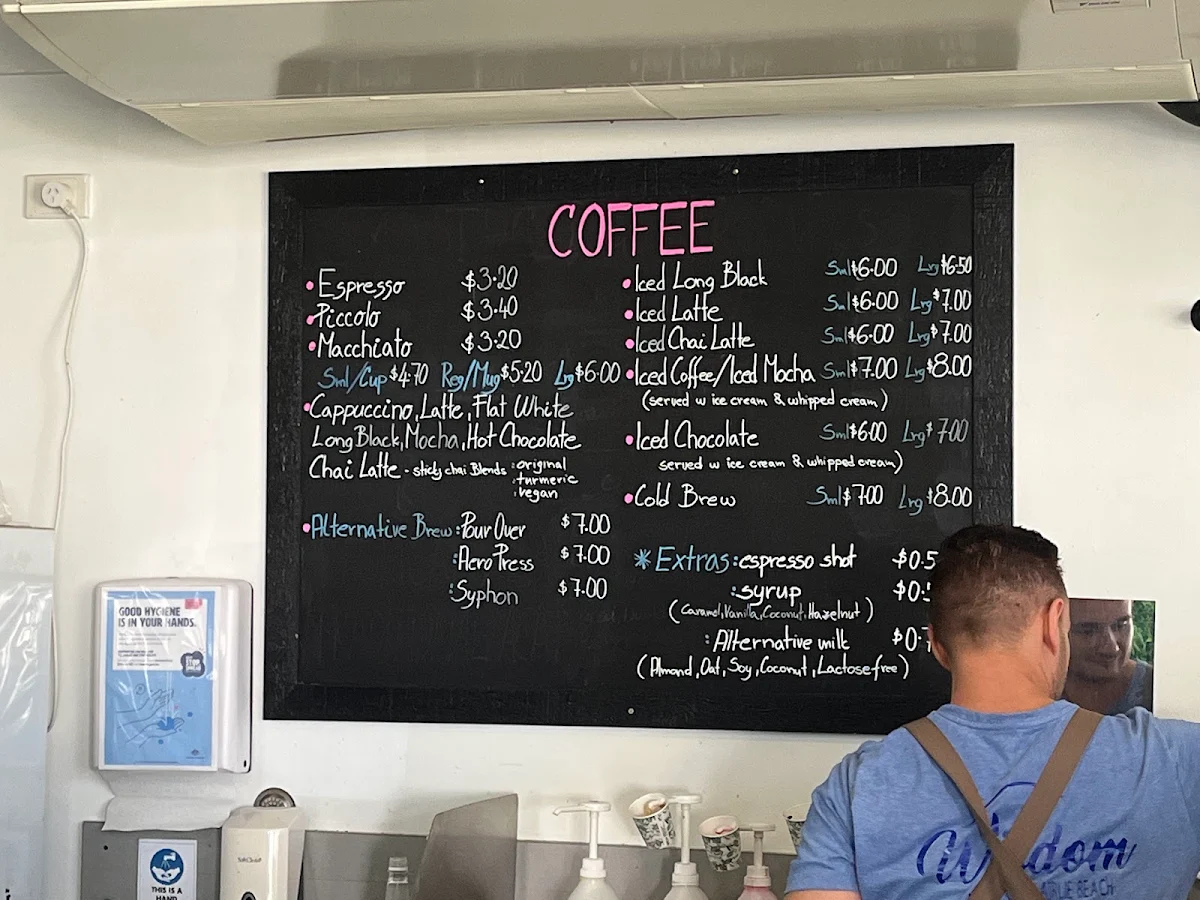 COFFEE
• Espresso $3.20
• Piccolo $3.40
• Macchiato $3.20
Sml/Cup $4.70 Reg/Mug $5.20 Lrg $6.00
• Cappuccino, Latte, Flat White
Long Black, Mocha, Hot Chocolate
Chai Latte - sticky chai Blends : original
: turmeric
: vegan
• Alternative Brew : Pour Over $7.00
: AeroPress $7.00
: Syphon $7.00
• Iced Long Black Sml $6.00 Lrg $6.50
• Iced Latte Sml $6.00 Lrg $7.00
• Iced Chai Latte Sml $6.00 Lrg $7.00
• Iced Coffee/Iced Mocha Sml $7.00 Lrg $8.00
(served w ice cream & whipped cream)
• Iced Chocolate Sml $6.00 Lrg $7.00
served w ice cream & whipped cream)
• Cold Brew Sml $7.00 Lrg $8.00
* Extras : espresso shot $0.5
: syrup $0.5
(Caramel, Vanilla, Coconut, Hazelnut)
: Alternative milk $0.7
(Almond, Oat, Soy, Coconut, Lactose free)
GOOD HYGIENE
IS IN YOUR HANDS.
THIS IS A
HAND
AIRLIE BEACH